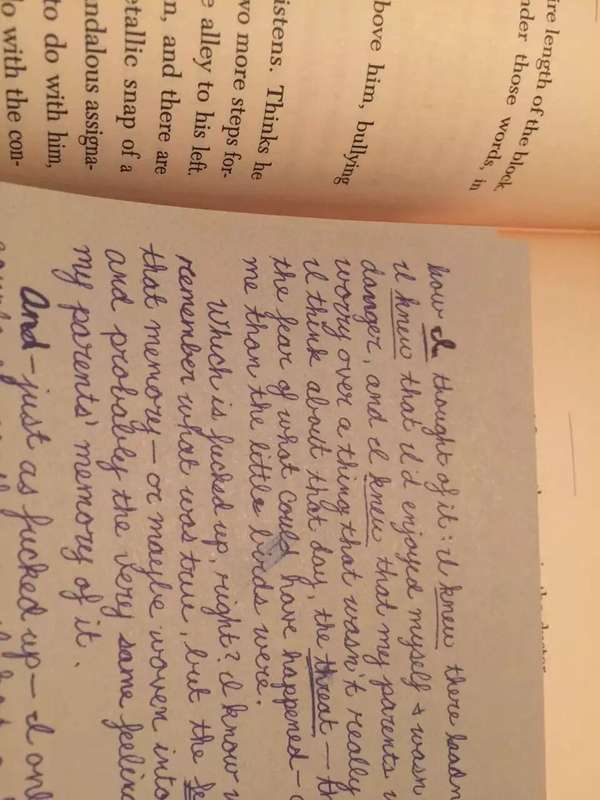 ire length of the block
nder those words, in
bove him, bullying
istens. Thinks he
wo more steps for-
e alley to his left.
n, and there are
etallic snap of a
andalous assigna-
to do with him,
do with the con-
how I thought of it: I knew there hadn
I knew that I'd enjoyed myself & wasn
danger, and I knew that my parents
worry over a thing that wasn't really
I think about that day, the threat –
the fear of what could have happened –
me than the little birds were.
Which is fucked up, right? I know
remember what was true, but the
that memory – or maybe woven into
and probably the very same feeling
my parents' memory of it.
And – just as fucked up – I only